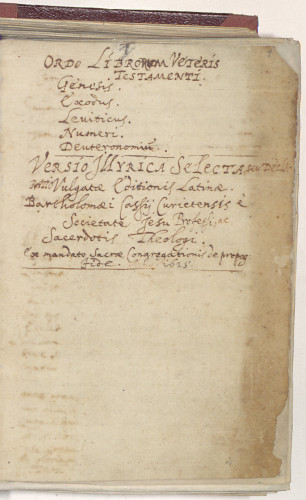 ORDO LIBRORUM VETERIS
TESTAMENTI.
Genesis.
Exodus.
Leviticus.
Numeri.
Deuteronomiũ.
VERSIO Illyrica SELECTA
Vulgatæ Editionis Latinæ.
Bartholomæi Cassij Curictensis è
Societate Jesu Professi, ac
Sacerdotis Theologi.
Ex mandato Sacræ Congregationis de propag:
Fide. 1625.